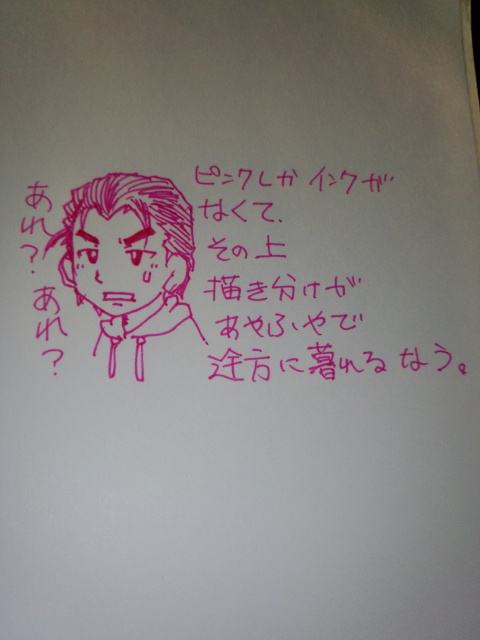 あれ?あれ?
ピンクしかインクが
なくて、
その上
描き分けが
あやふやで
途方に暮れるなう。